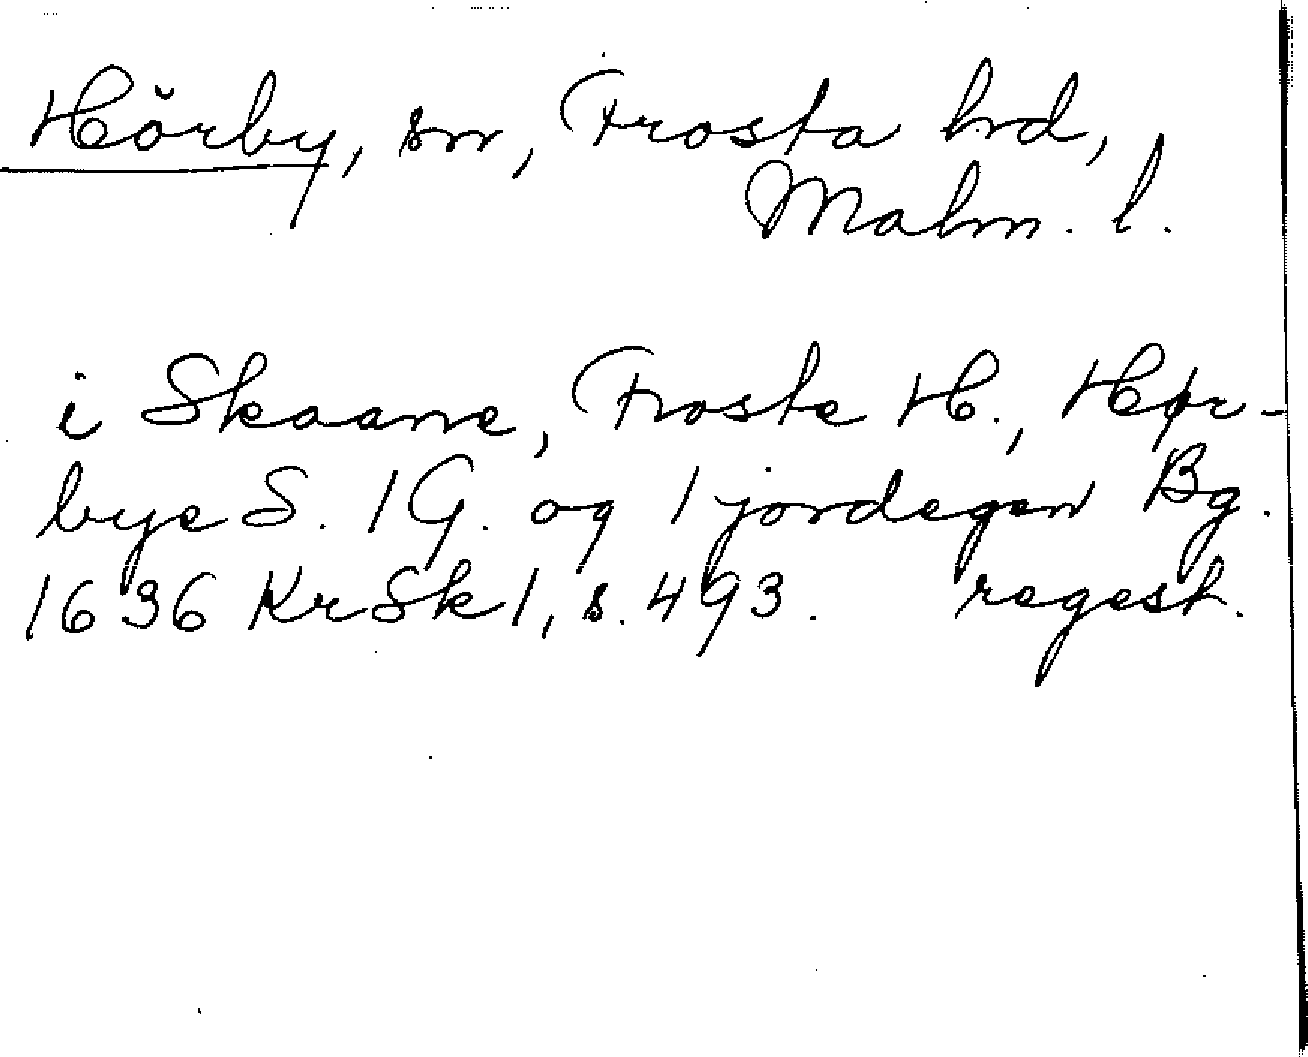 Hörby, sn, Frosta hrd,
Malm. l.
i Skaane, Froste H., Hør-
bye S. 1 G. og 1 jordegen Bg.
1636 KrSk 1, s. 493. regest.